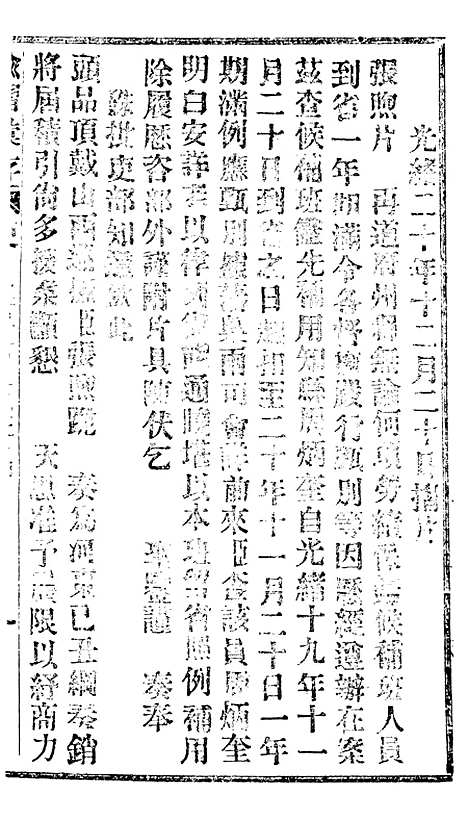 光緒二十年十二月二十日摺片
張煦片　再道府州縣無論何項勞績保歸候補班人員
到省一年期滿令各督撫嚴行甄別等因歷經遵辦在案
茲查候補班儘先補用知縣周炳奎自光緒十九年十一
月二十日到省之日起扣至二十年十一月二十日一年
期滿例應甄別據藩臬兩司會詳前來臣查該員周炳奎
明白安詳 堪以本班留省照例補用
除履歷咨部外謹附片具陳伏乞　聖鑒謹　奏奉
硃批吏部知道欽此
頭品頂戴山西巡撫臣張煦跪　奏為河東己丑綱奏銷
將屆積引尚多援案籲懇　天恩准予展限以紓商力